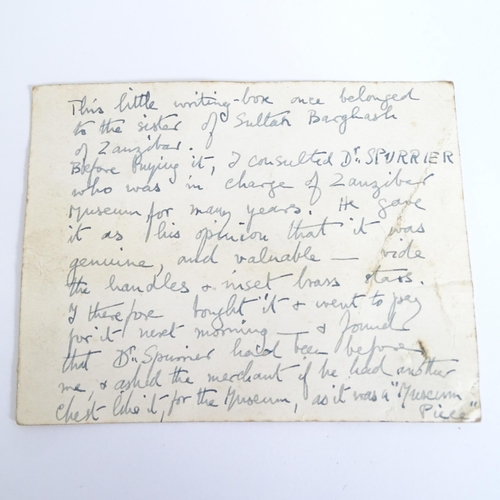 This little writing-box once belonged
to the sister of Sultan Barghash
of Zanzibar.
Before buying it, I consulted Dr. SPURRIER
who was in charge of Zanzibar
Museum for many years. He gave
it as his opinion that it was
genuine, and valuable — vide
the handles & inset brass stars.
I therefore bought it & went to pay
for it next morning — & found
that Dr. Spurrier had been before
me, & asked the merchant if he had another
chest like it, for the Museum, as it was a "Museum
Piece"